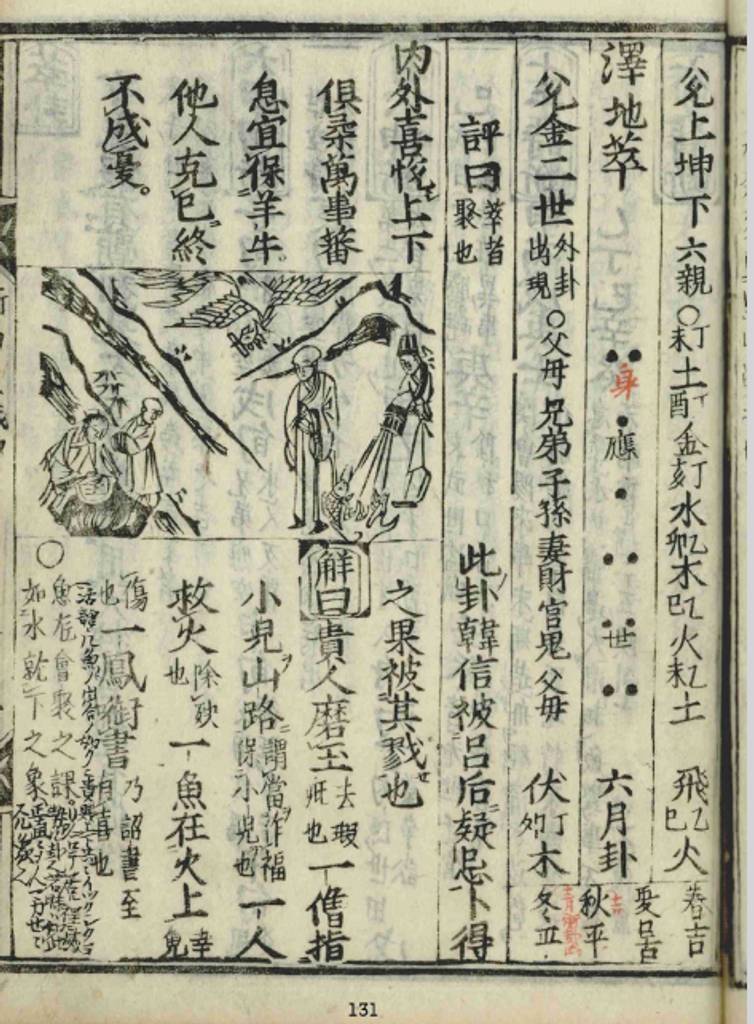 兌上坤下六親○未丁土酉丁金亥丁水卯乙木巳乙火未乙土 飛乙巳火 春吉
澤地萃 身 應 世 六月卦 夏吉 秋平
兌金二世外卦出現○父母兄弟子孫妻財官鬼父母 伏丁卯木 冬
評曰萃者聚也 此卦韓信被呂后疑忌卜得
之果被其戮也
内外喜悅上下
俱柔萬事蕃
息宜保羊牛
他人克已終
不成憂。
解曰貴人磨玉去瑕疵也一僧指
小兒山路謂當作福保小兒也一人
救火除殃也一魚在火上幸免
傷也一鳳銜書乃詔書至有喜也
○魚在會聚之課
如水就下之象
131